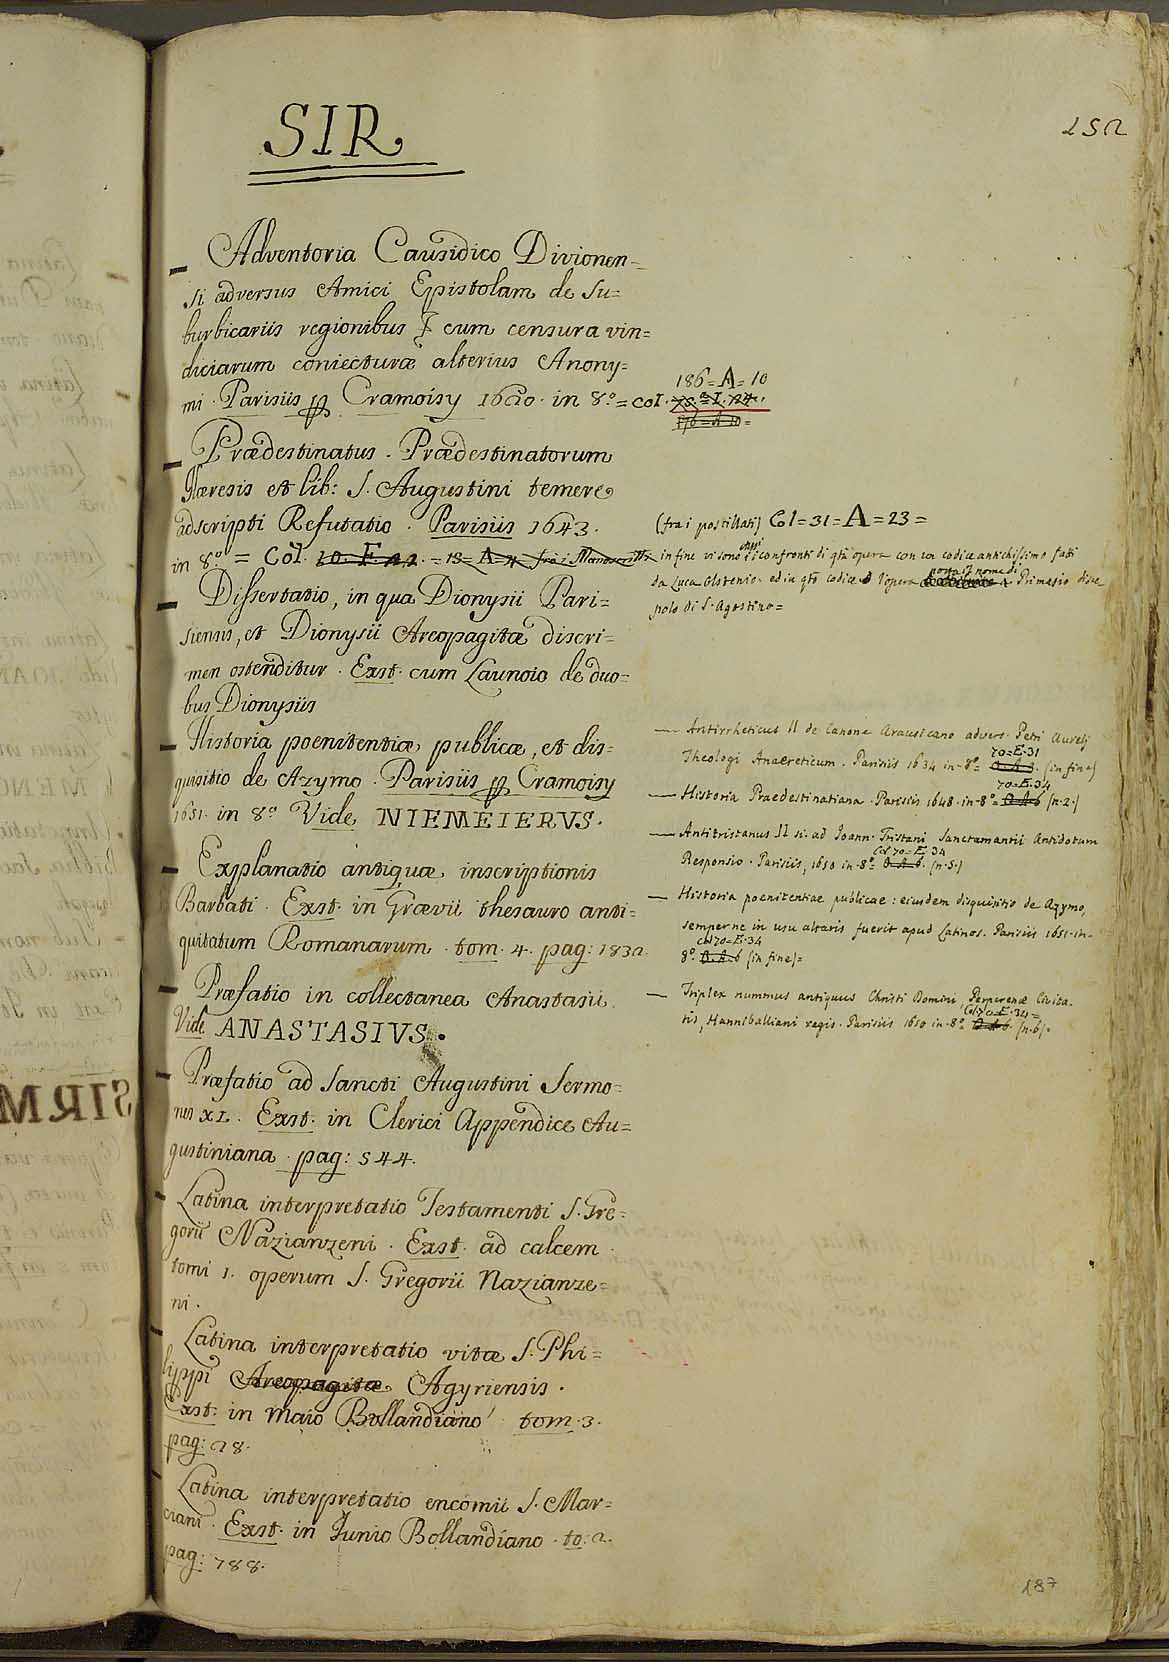 SIR
152
— Adventoria Causidico Divionen=
si adversus Amici Epistolam de su=
burbicariis regionibus & cum censura vin=
diciarum coniecturæ alterius Anony=
mi. Parisiis p Cramoisy 1620. in 8.º = col.
186=A=10
— Prædestinatus. Prædestinatorum
Hæresis et lib: S. Augustini temere
adscripti Refutatio. Parisiis 1643.
in 8.º = Col. 10. F. 22. = 13=A=4 fra i Manoscritti
(fra i postillati) Col=31=A=23=
in fine vi sono i confronti di qta opera con un codice antichissimo fatti
da Luca Olstenio ed in qto codice l'opera porta il nome di Primasio disce
polo di S. Agostino=
— Dissertatio, in qua Dionysii Pari=
siensis, et Dionysii Areopagitæ discri=
men ostenditur. Exst. cum Launoio de duo=
bus Dionysiis
— Historia poenitentiæ publicæ, et dis=
quisitio de Azymo. Parisiis p Cramoisy
1651. in 8.º Vide NIEMEIERVS.
— Explanatio antiquæ inscriptionis
Barbati. Exst. in Grævii thesauro anti=
quitatum Romanarum tom. 4. pag: 1832.
— Præfatio in collectanea Anastasii
Vide ANASTASIVS.
— Præfatio ad Sancti Augustini Sermo=
nes XL. Exst. in Clerici Appendice Au=
gustiniana pag: 544.
— Latina interpretatio Testamenti S. Gre=
gorii Nazianzeni. Exst. ad calcem
tomi 1. operum S. Gregorii Nazianze=
ni.
— Latina interpretatio vitæ S. Phi=
lippi Areopagitæ Agyriensis.
Exst. in Maio Bollandiano tom. 3.
pag: 28.
— Latina interpretatio encomii S. Mar=
ciani. Exst. in Junio Bollandiano. to: 2.
pag: 788.
— Antirrheticus II de Canone Arausicano advers. Petri Aurelj
Theologi Anaereticum. Parisiis 1634 in-8º= (in fine)
70=E.31
70=E.34
— Historia Praedestinatiana. Parisiis 1648. in-8º= (n.2.)
— Antitristanus II si. ad Joann. Tristani Sanctamantii Antidotum
Col 70=E.34
Responsio. Parisiis, 1650 in-8º= (n.5.)
— Historia poenitentiae publicae: eiusdem disquisitio de Azymo,
semper ne in usu altaris fuerit apud Latinos. Parisiis 1651. in-
Col 70=E.34
8º (in fine)=
— Triplex nummus antiquus Christi Domini, Perperenæ Civita.
Col 70=E.34=
tis, Hanniballiani regis. Parisiis 1650 in-8º (n.6).
187